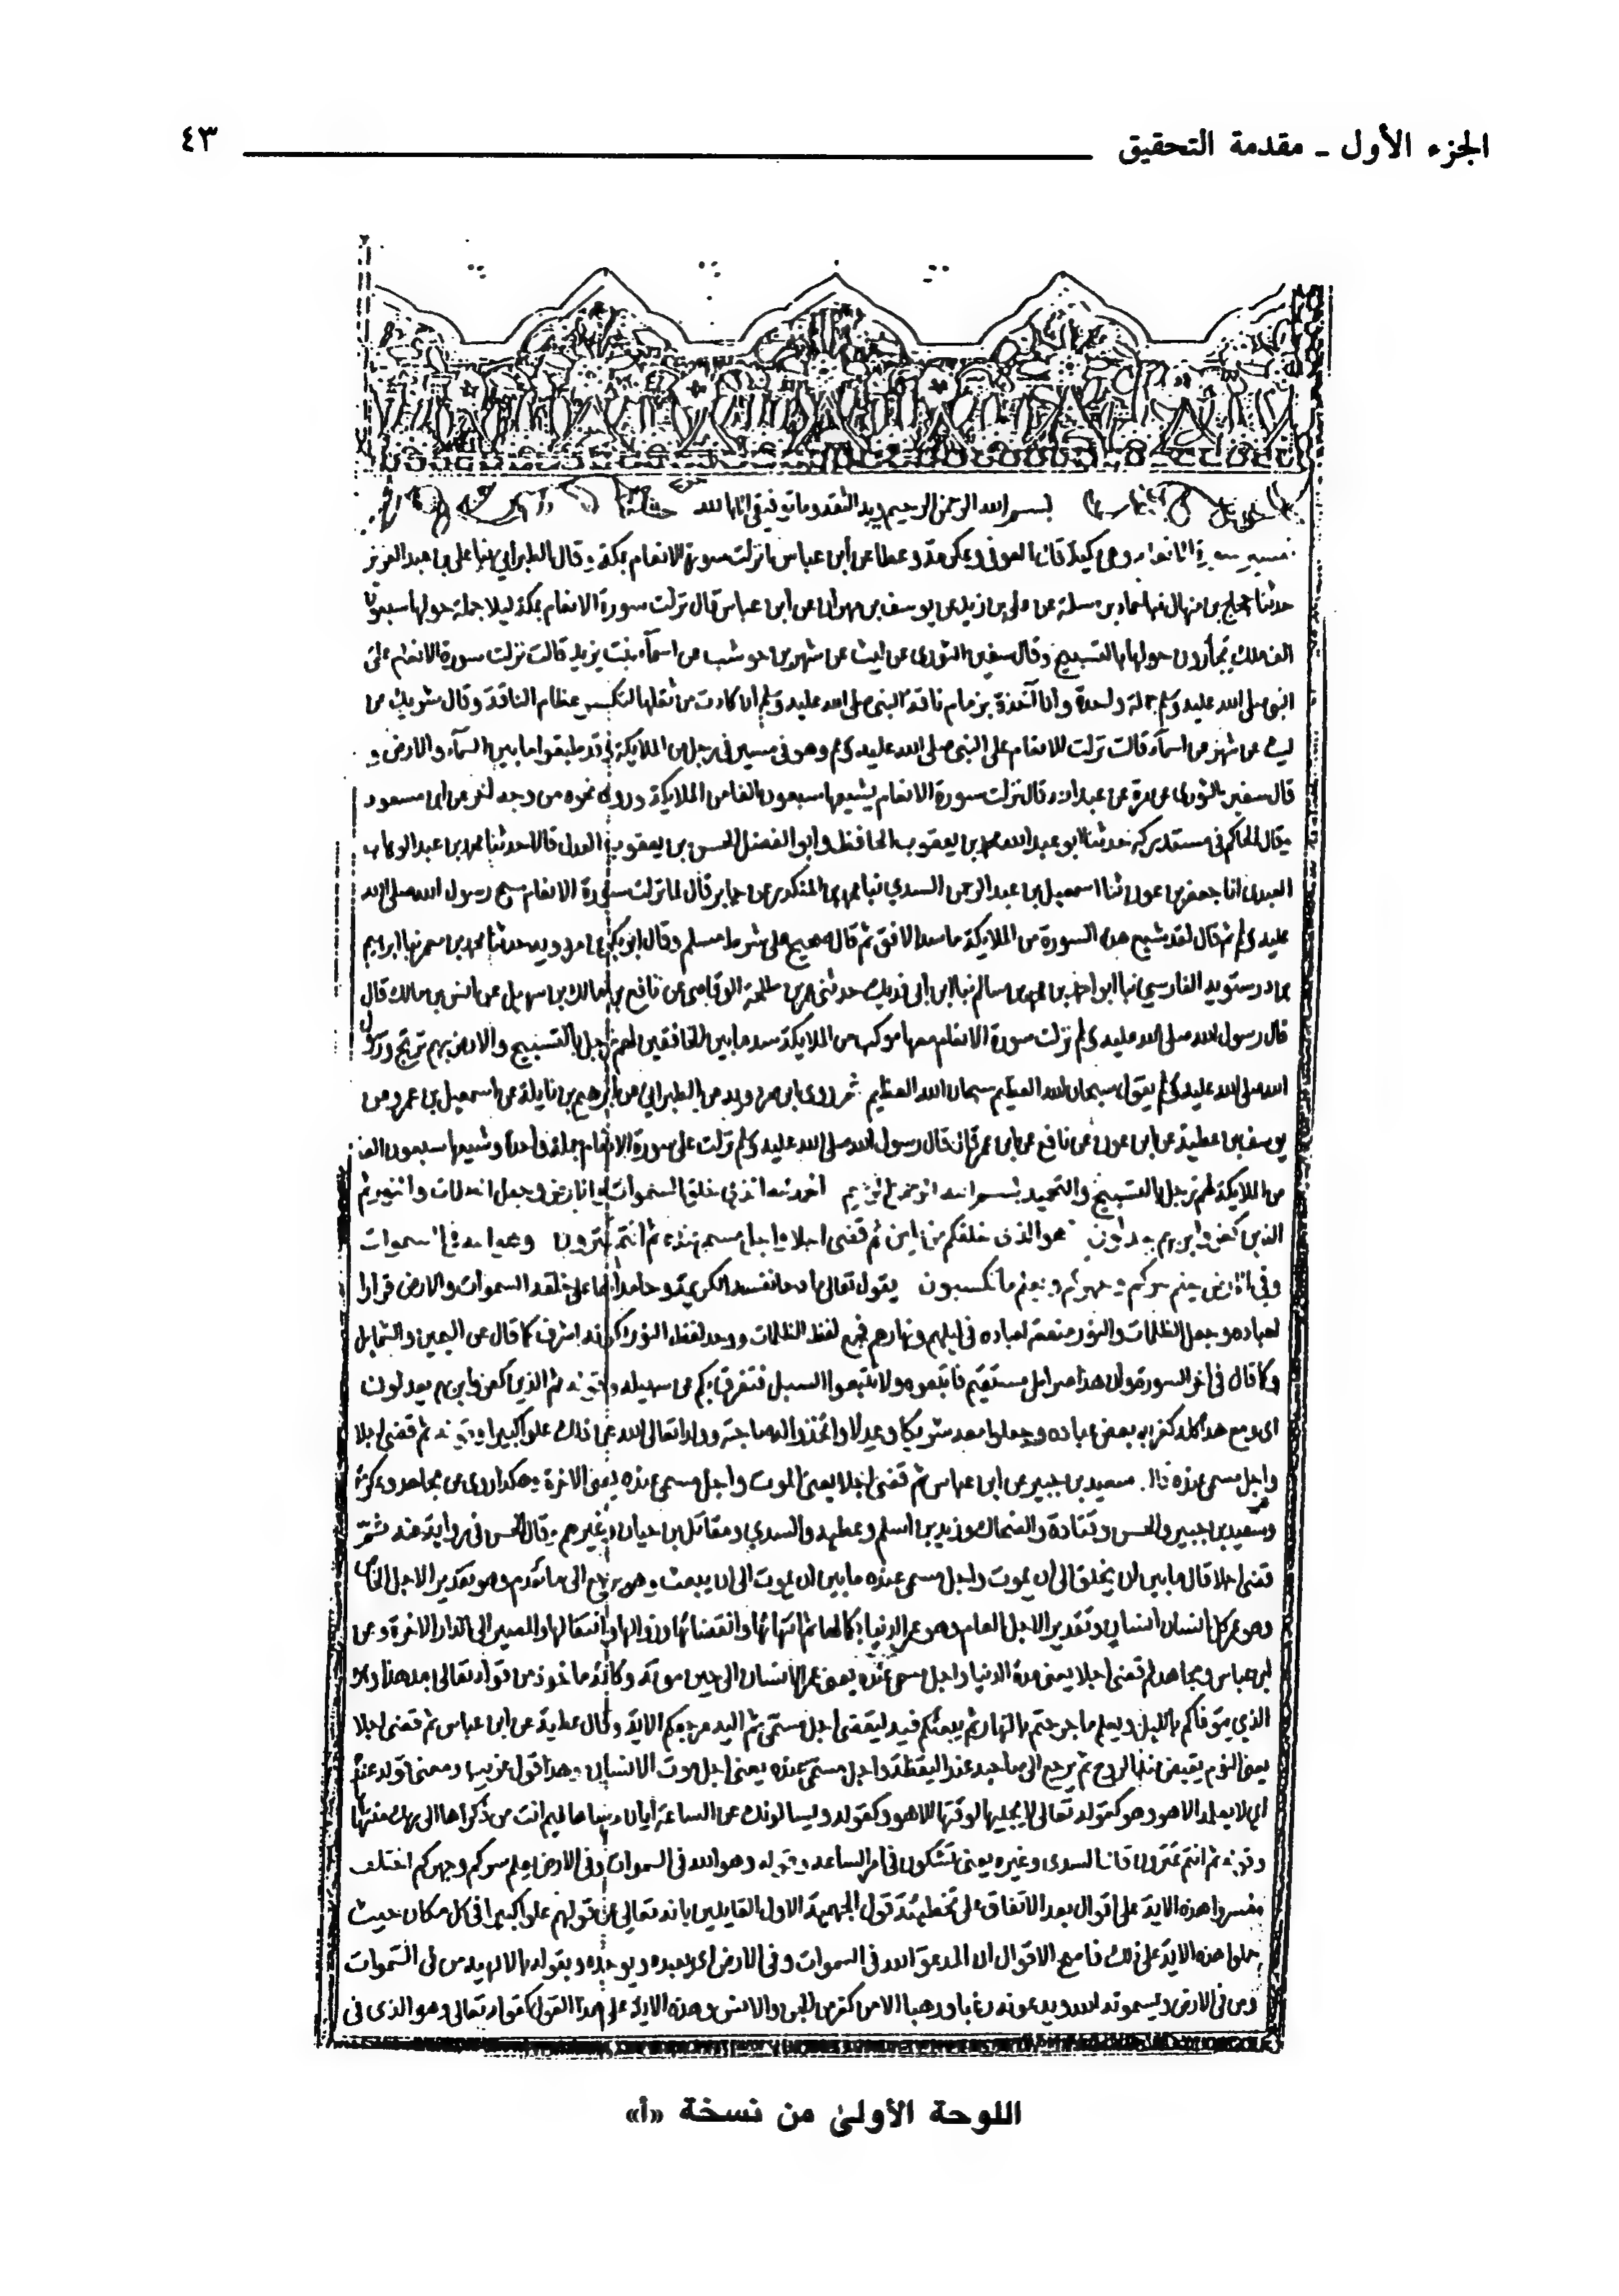 الجزء الأول ـ مقدمة التحقيق ٤٣
بسم الله الرحمن الرحيم وبه الثقة وما توفيقي الا بالله
وهي مكية قال العوفي وعكرمة وعطا عن ابن عباس انزلت سورة الانعام بمكة وقال الطبراني ثنا علي بن عبد العزيز
حدثنا حجاج بن منهال ثنا حماد بن سلمة عن علي بن زيد عن يوسف بن مهران عن ابن عباس قال نزلت سورة الانعام بمكة ليلا جملة حولها سبعون
الف ملك يجأرون حولها بالتسبيح وقال سفين الثوري عن ليث عن شهر بن حوشب عن اسمآء بنت يزيد قالت نزلت سورة الانعام على
النبي صلى الله عليه وسلم جملة واحدة وانا آخذة بزمام ناقة النبي صلى الله عليه وسلم ان كادت من ثقلها لتكسر عظام الناقة وقال شريك عن
ليث عن شهر عن اسمآء قالت نزلت الانعام على النبي صلى الله عليه وسلم وهو في مسير في زجل من الملايكة وقد طبقوا ما بين السمآء والارض و
قال سفين الثوري عن مرة عن عبد الله قال نزلت سورة الانعام يشيعها سبعون الفا من الملايكة وروى نحوه من وجه اخر عن ابن مسعود
وقال الحاكم في مستدركه حدثنا ابو عبد الله محمد بن يعقوب الحافظ وابو الفضل الحسن بن يعقوب العدل قالا حدثنا محمد بن عبد الوهاب
العبدي انا جعفر بن عون ثنا اسمعيل بن عبد الرحمن السدي ثنا محمد بن المنكدر عن جابر قال لما نزلت سورة الانعام سبح رسول الله صلى الله
عليه وسلم ثم قال لقد شيع هذه السورة من الملايكة ما سد الافق ثم قال صحيح على شرط مسلم وقال ابو بكر بن مردويه حدثنا محمد بن معمر ثنا ابراهيم
بن درستويه الفارسي ثنا ابو بكر احمد بن محمد بن سالم ثنا ابن ابي فديك حدثني عمر بن طلحة الوقاصي عن نافع بن مالك بن سهيل عن انس بن مالك قال
قال رسول الله صلى الله عليه وسلم نزلت سورة الانعام معها موكب من الملايكة سد ما بين الخافقين لهم زجل بالتسبيح والارض بهم ترتج ورسول
الله صلى الله عليه وسلم يقول سبحان الله العظيم سبحان الله العظيم ثم روى ابن مردويه عن الطبراني عن ابرهيم بن نايلة عن اسمعيل بن عمرو عن
يوسف بن عطية عن ابن عون عن نافع عن ابن عمر قال قال رسول الله صلى الله عليه وسلم نزلت على سورة الانعام جملة واحدة وشيعها سبعون الف
من الملايكة لهم زجل بالتسبيح والتحميد بسم الله الرحمن الرحيم الحمد لله الذي خلق السموات والارض وجعل الظلمات والنور ثم
الذين كفروا بربهم يعدلون هو الذي خلقكم من طين ثم قضى اجلا واجل مسمى عنده ثم انتم تمترون وهو الله في السموات
وفي الارض يعلم سركم وجهركم ويعلم ما تكسبون يقول تعالى مادحا نفسه الكريمة وحامدا لها على خلقه السموات والارض قرارا
لعباده وجعل الظلمات والنور منفعة لعباده في ليلهم ونهارهم فجمع لفظ الظلمات ووحد لفظ النور لكونه اشرف كما قال عن اليمين والشمايل
وكما قال في اخر السورة وان هذا صراطي مستقيم فاتبعوه ولا تتبعوا السبل فتفرق بكم عن سبيله وقوله ثم الذين كفروا بربهم يعدلون
اي ومع هذا كله كفر به بعض عباده وجعلوا معه شريكا وعدلا واتخذوا له صاحبة وولدا تعالى الله عن ذلك علوا كبيرا وقوله ثم قضى اجلا
واجل مسمى عنده قال سعيد بن جبير عن ابن عباس ثم قضى اجلا يعني الموت واجل مسمى عنده يعني الاخرة وهكذا روى عن مجاهد وعكرمة
وسعيد بن جبير والحسن وقتادة والضحاك وزيد بن اسلم وعطية والسدي ومقاتل بن حيان وغيرهم وقال الحسن في رواية عنه ثم
قضى اجلا قال ما بين ان يخلق الى ان يموت واجل مسمى عنده ما بين ان يموت الى ان يبعث وهو يرجع الى ما تقدم وهو تقدير الاجل الخاص
وهو عمر كل انسان انسان وتقدير الاجل العام وهو عمر الدنيا بكمالها ثم انتهائها وانقضائها وزوالها وانتقالها والمصير الى الدار الاخرة وعن
ابن عباس ومجاهد ثم قضى اجلا يعني مدة الدنيا واجل مسمى عنده يعني عمر الانسان الى حين موته وكانه ماخوذ من قوله تعالى بعد هذا وهو
الذي يتوفاكم بالليل ويعلم ما جرحتم بالنهار ثم يبعثكم فيه ليقضى اجل مسمى ثم اليه مرجعكم الاية وقال عطية عن ابن عباس ثم قضى اجلا
يعني النوم يقبض فيه الروح ثم يرجع الى صاحبه عند اليقظة واجل مسمى عنده يعني اجل موت الانسان وهذا قول غريب ومعنى قوله عنده
اي لا يعلمه الا هو وهو كقوله تعالى لا يجليها لوقتها الا هو وكقوله ويسالونك عن الساعة ايان مرساها فيم انت من ذكراها الى ربك منتهاها
وقوله ثم انتم تمترون قال السدي وغيره يعني تشكون في امر الساعة وقوله وهو الله في السموات وفي الارض يعلم سركم وجهركم اختلف
مفسروا هذه الاية على اقوال بعد الاتفاق على تخطيئة قول الجهمية الاول القايلين بانه تعالى عن قولهم علوا كبيرا في كل مكان حيث
حملوا هذه الاية على ذلك فاصح الاقوال ان المدعو الله في السموات وفي الارض اي يعبده ويوحده ويقر له بالالهية من في السموات
ومن في الارض ويسمونه الله ويدعونه رغبا ورهبا الا من كفر من الجن والانس وهذه الاية على هذا القول كقوله تعالى وهو الذي في
اللوحة الأولىٰ من نسخة «أ»